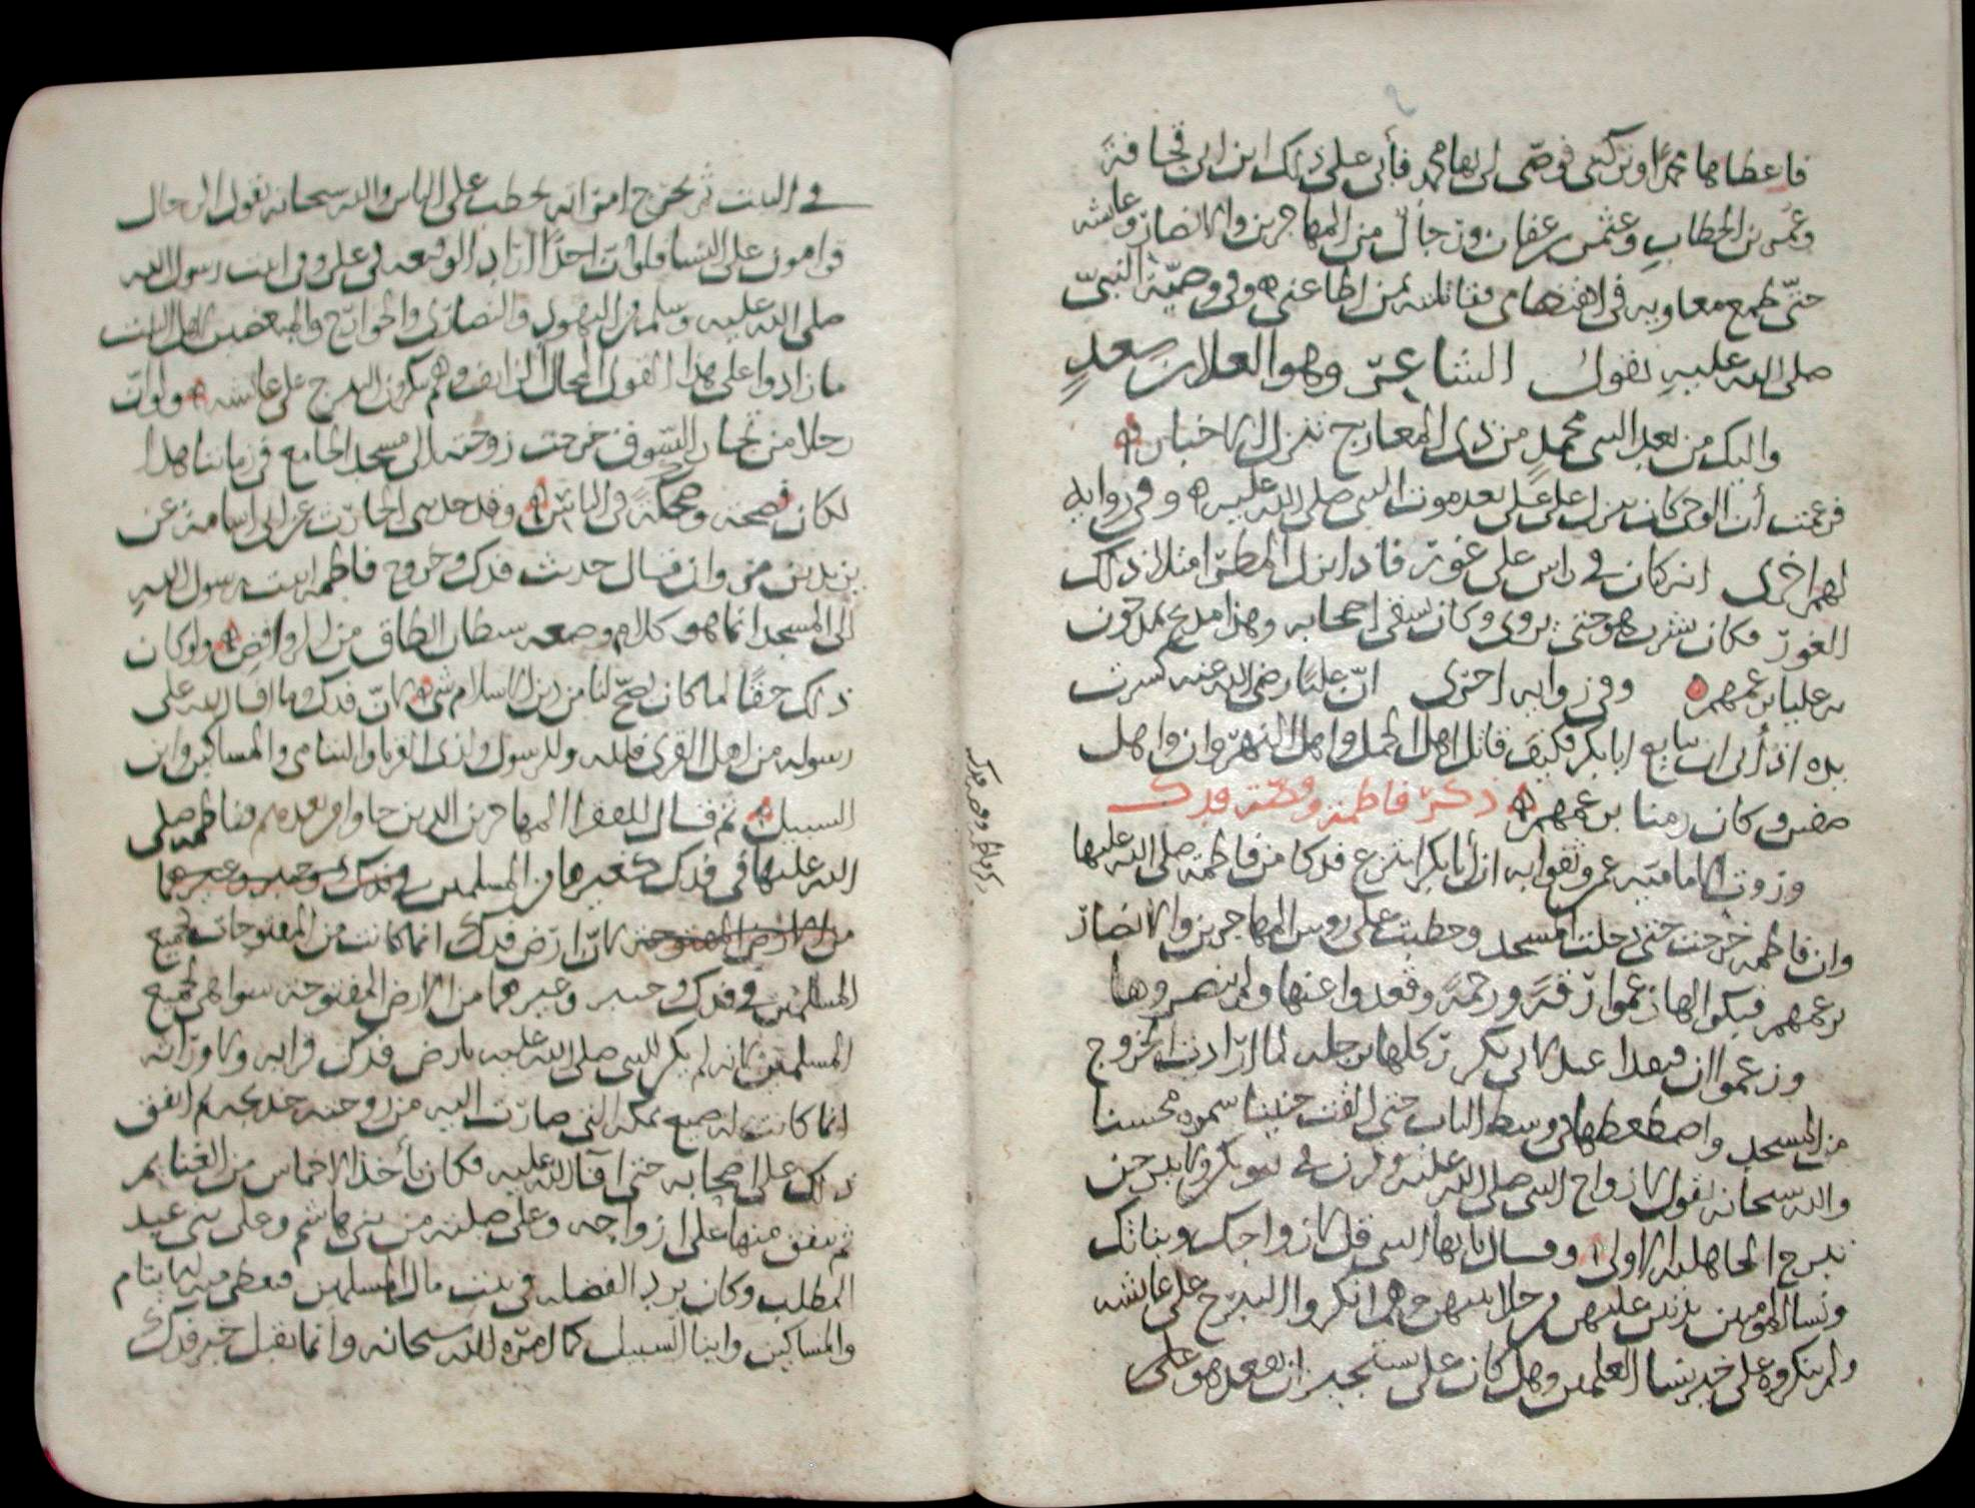 فاعطاها عمرا وتركني فوصى لي بها محمد فأبى على ذلك ابن ابي قحافة
وعمر بن الخطاب وعثمن بن عفان ورجال من المهاجرين والانصار وعايشه
حتى طمع معاويه في اهتضامي فقاتلته بمن اطاعني ه وفي وصية النبي
صلى الله عليه يقول الشاعر وهو العلا بن سعد
واليك من بعد النبي محمد من ذي المعارج تنزل الاخبار
فزعمت أن الوحي كان ينزل على علي بعد موت النبي صلى الله عليه ه وفي روايه
لهم اخرى انه كان في راس علي غور فاذا نزل المطر امتلا ذلك
الغور فكان يشرب هو حتى يروى وكان يسقي اصحابه وهذا مدح يمدحون
به عليا بزعمهم ه وفي روايه اخرى ان عليا رضي الله عنه كسرت
يده اذ أبى ان يبايع ابا بكر فكيف قاتل اهل الجمل واهل النهروان واهل
صفين وكان زمنا بزعمهم ه ذكر فاطمة وقصة فدك
وروت الاماميه عمن تقوا به ان أبا بكر انتزع فدكا من فاطمة صلى الله عليها
وان فاطمه خرجت حتى دخلت المسجد وخطبت على روس المهاجرين والانصار
بزعمهم فبكوا لها زعموا رقة ورحمة وقعدوا عنها ولم ينصروها
وزعموا ان قنفدا عبد لابي بكر ركلها برجله لما ارادت الخروج
من المسجد واضطغطها في وسط الباب حتى القت جنينا سموه محسنا
والله سبحانه يقول لازواج النبي صلى الله عليه وقرن في بيوتكن ولا تبرجن
تبرج الجاهليه الاولى وقال يايها النبي قل لازواجك وبناتك
ونسا المومنين يدنين عليهن من جلابيبهن وهم انكروا التبرج على عايشه
ولم ينكروه على خير نسا العلمين وهل كان علي يستجيز ان يقعد هو علي
في البيت ثم يخرج امراته تخطب على الناس والله سبحانه يقول الرجال
قوامون على النسا فلو ان احدا اراد الوقيعه في علي وفي ابنت رسول الله
صلى الله عليه وسلم من اليهود والنصارى والخوارج والمبغضين لاهل البيت
ما زادوا على هذا القول المحال الزايف وهم ينكرون التبرج على عايشه ه ولو ان
رجلا من تجار السوق خرجت زوجته الى مسجد الجامع في زماننا هذا
لكان فضحة وضحكة في الناس ه وقد حدثني الحارث عن ابي اسامة عن
يزيد بن مروان قال حديث فدك وخروج فاطمه ابنت رسول الله
الى المسجد انما هو كلام وضعه شيطان الطاق من الروافض ه ولو كان
ذلك حقا لما كان يصح لنا من دين الاسلام شي لان فدك ما افا الله على
رسوله من اهل القرى فلله وللرسول ولذي القربا واليتامى والمساكين وابن
السبيل ثم قال للفقرا المهاجرين الذين جاوا من بعدهم ففاطمه صلى
الله عليها في فدك كغيرها من المسلمين في فدك وخيبر وغيرهما
من الارض المفتوحة لان ارض فدك انما كانت من المفتوحات فجميع
المسلمين في فدك وخيبر وغيرهما من الارض المفتوحة سوا هي لجميع
المسلمين لانه لم يكن للنبي صلى الله عليه بارض فدك قرابه ولا وراثه
انما كانت له ضيع بمكه التي صارت اليه من زوجته خديجه ثم انفق
ذلك على اصحابه حتى افا الله عليه فكان يأخذ الاخماس من الغنايم
ثم ينفق منها على ازواجه وعلى صلته من بني هاشم وعلى بني عبد
المطلب وكان يرد الفضله في بيت مال المسلمين فيعطي منه الايتام
والمساكين وابنا السبيل كما امره الله سبحانه وانما يقبل خبر فدك
ذكر فاطمة وقصة فدك